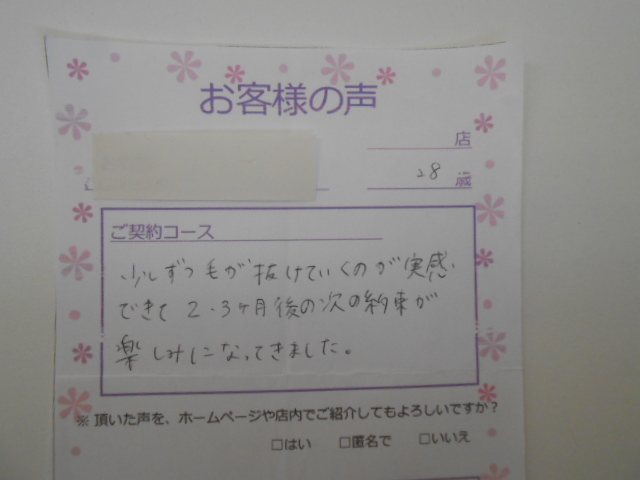 お客様の声
店
28 歳
ご契約コース
少しずつ毛が抜けていくのが実感
できて 2・3ヶ月後の次の約束が
楽しみになってきました。
※ 頂いた声を、ホームページや店内でご紹介してもよろしいですか?
□はい □匿名で □いいえ